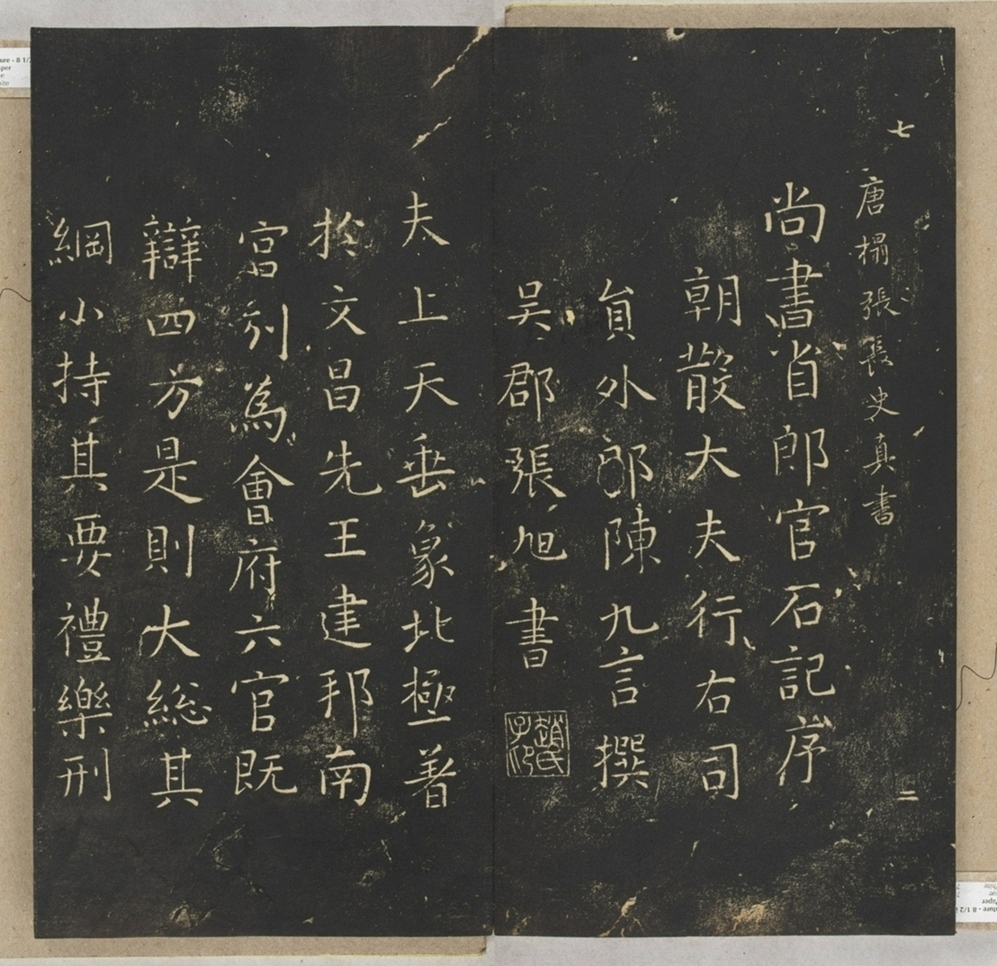 七
唐榻張長史真書
二
尚書省郎官石記序
朝散大夫行右司
貟外郎陳九言撰
吳郡張旭書
趙氏子印
夫上天垂象北極著
於文昌先王建邦南
宮列為會府六官既
辯四方是則大總其
綱小持其要禮樂刑